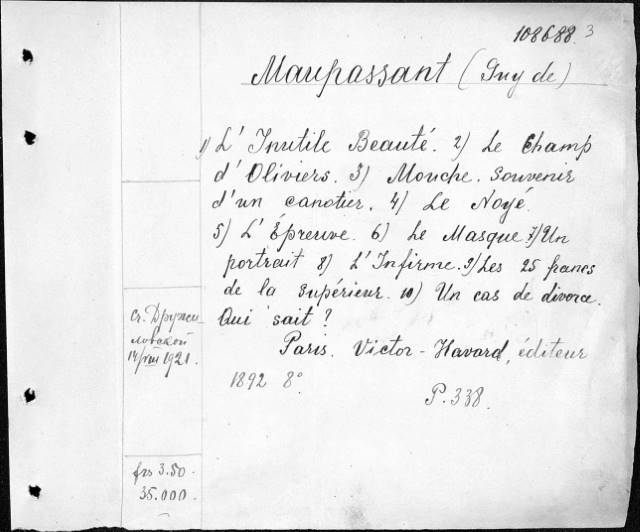 108688. 3
Maupassant (Guy de)
1) L' Inutile Beauté. 2) Le Champ
d' Oliviers. 3) Mouche. Souvenir
d'un canotier. 4) Le Noyé.
5) L' Épreuve. 6) Le Masque 7) Un
portrait 8) L'Infirme. 9) Les 25 francs
de la Supérieur. 10) Un cas de divorce.
Qui sait?
Paris. Victor-Havard, éditeur
1892 8°
P. 338.
ст.
ловской
14/VIII 1921.
frs 3.50.
35.000.